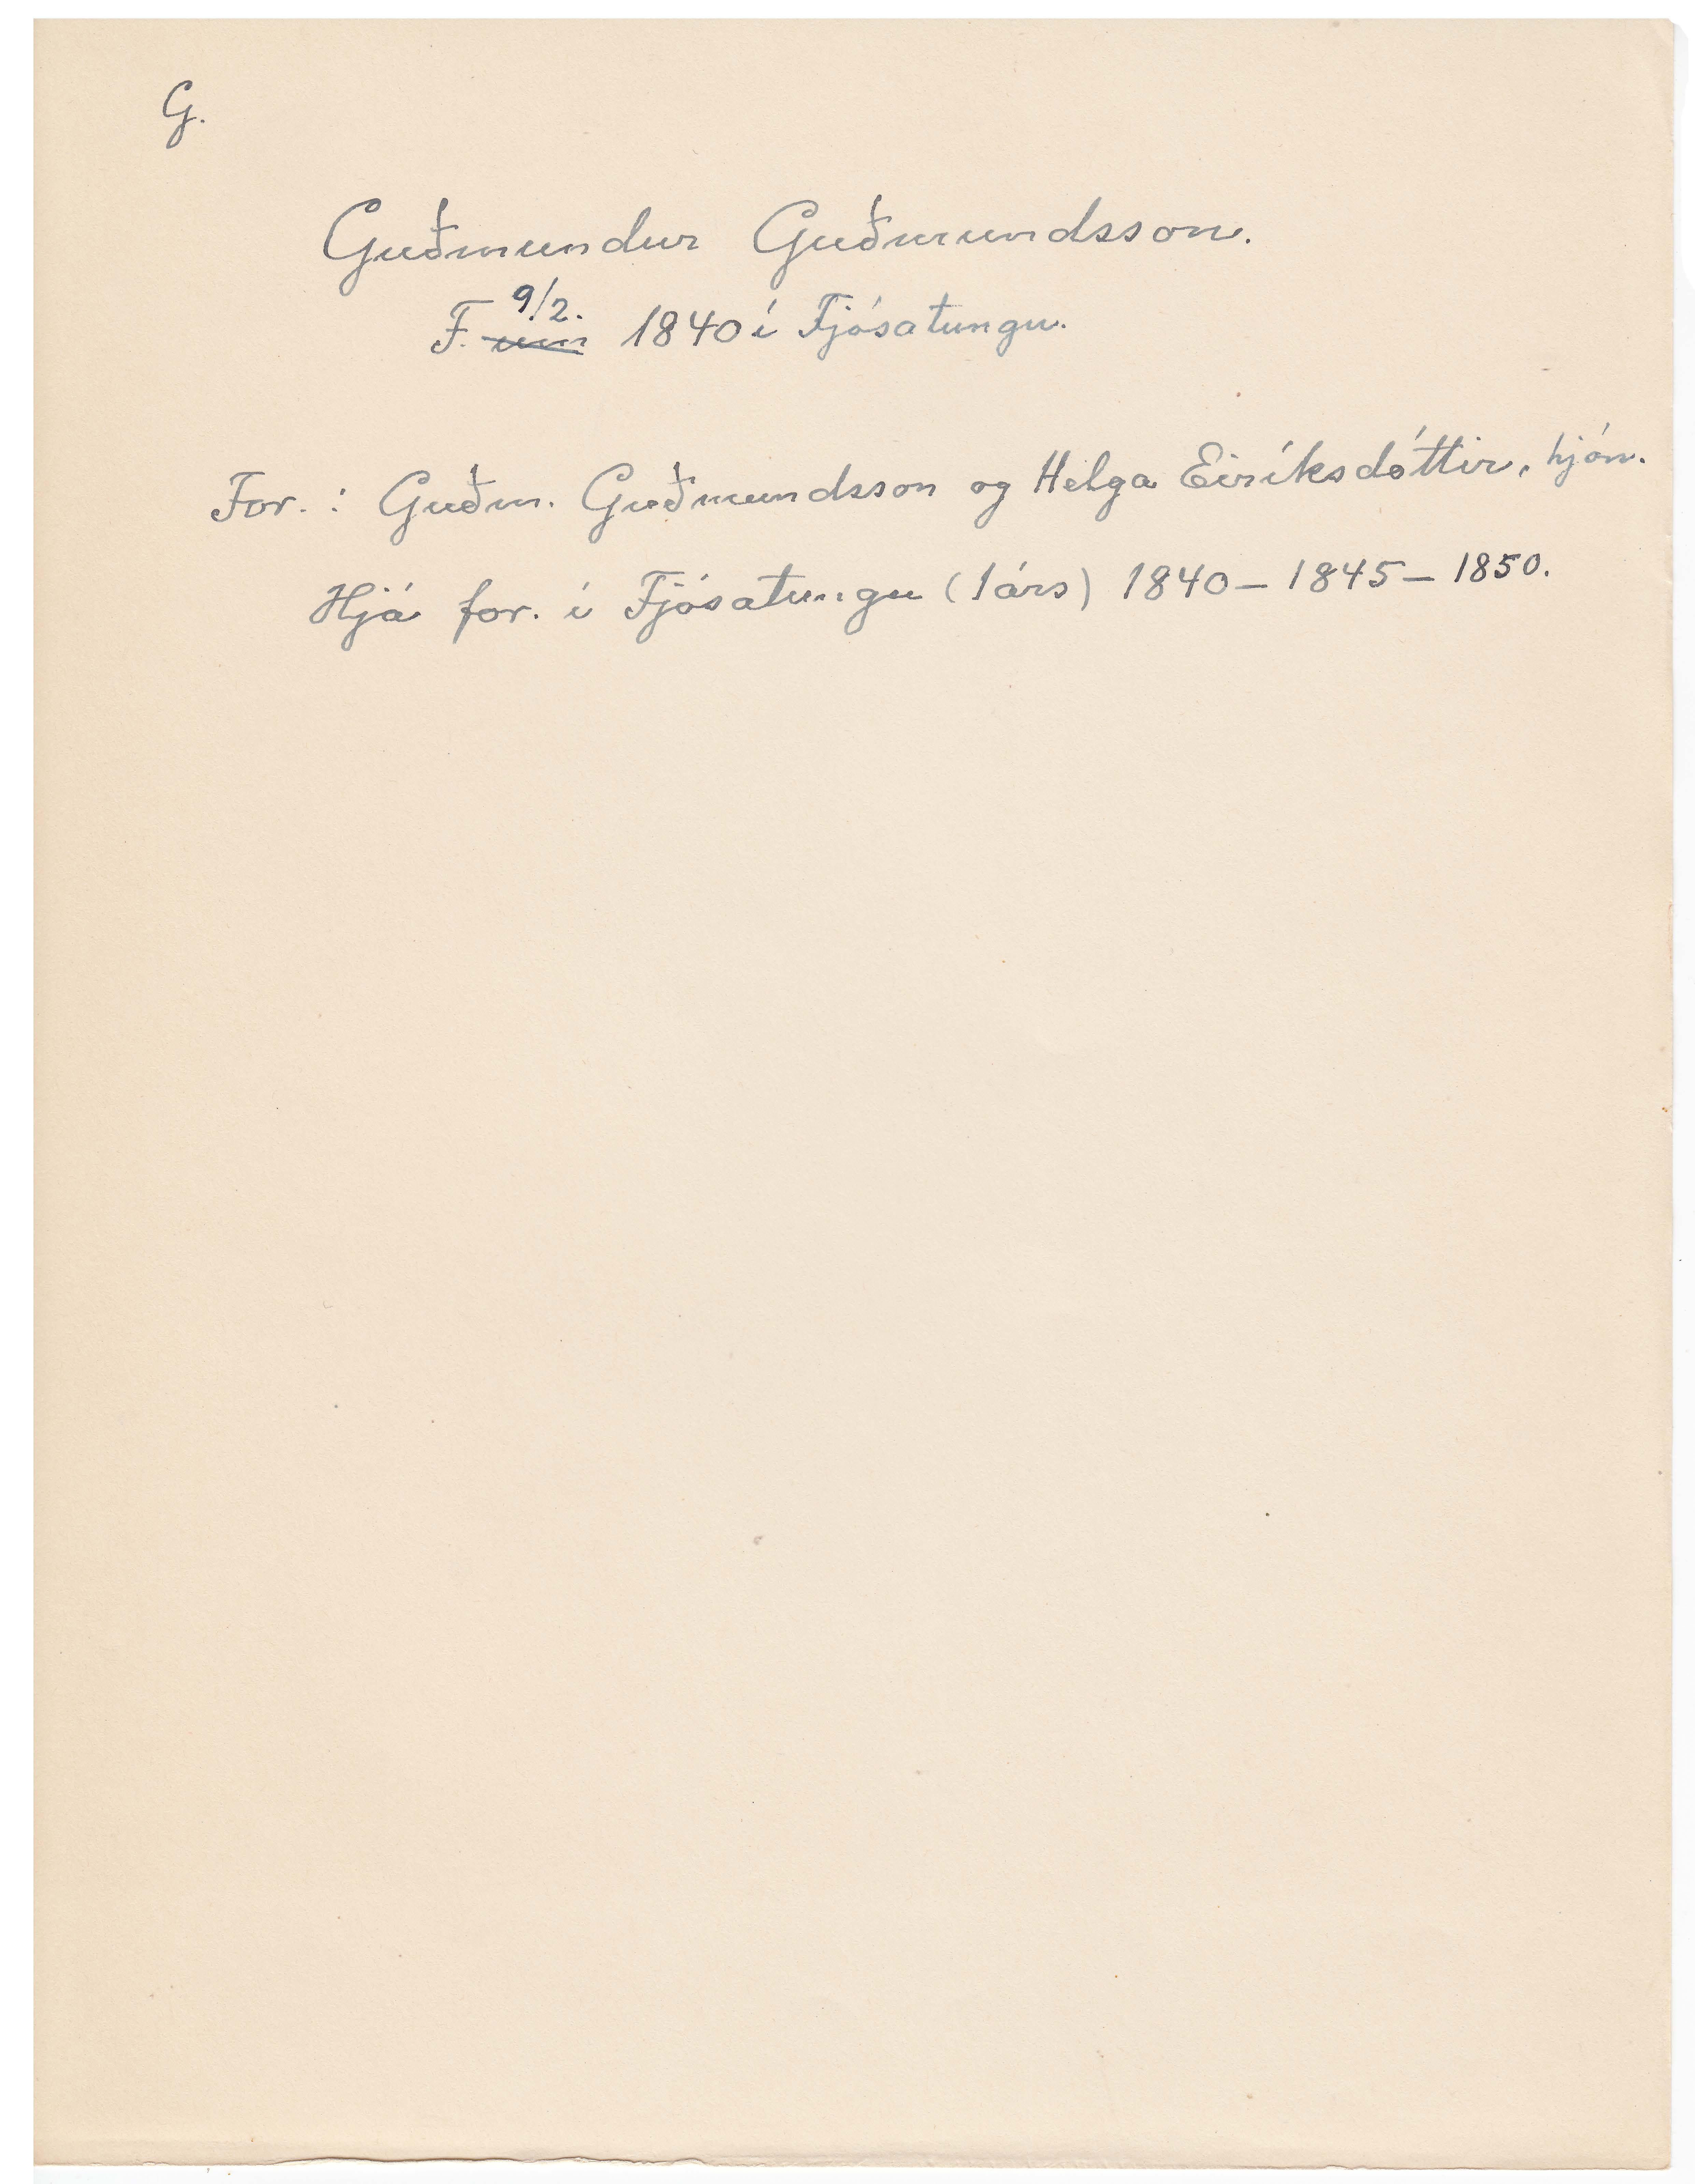 G.
Guðmundur Guðmundsson.
F. um 9/2. 1840 í Fjósatungu.
For. : Guðm. Guðmundsson og Helga Eiríksdóttir, hjón.
Hjá for. í Fjósatungu (1 árs) 1840 – 1845 – 1850.